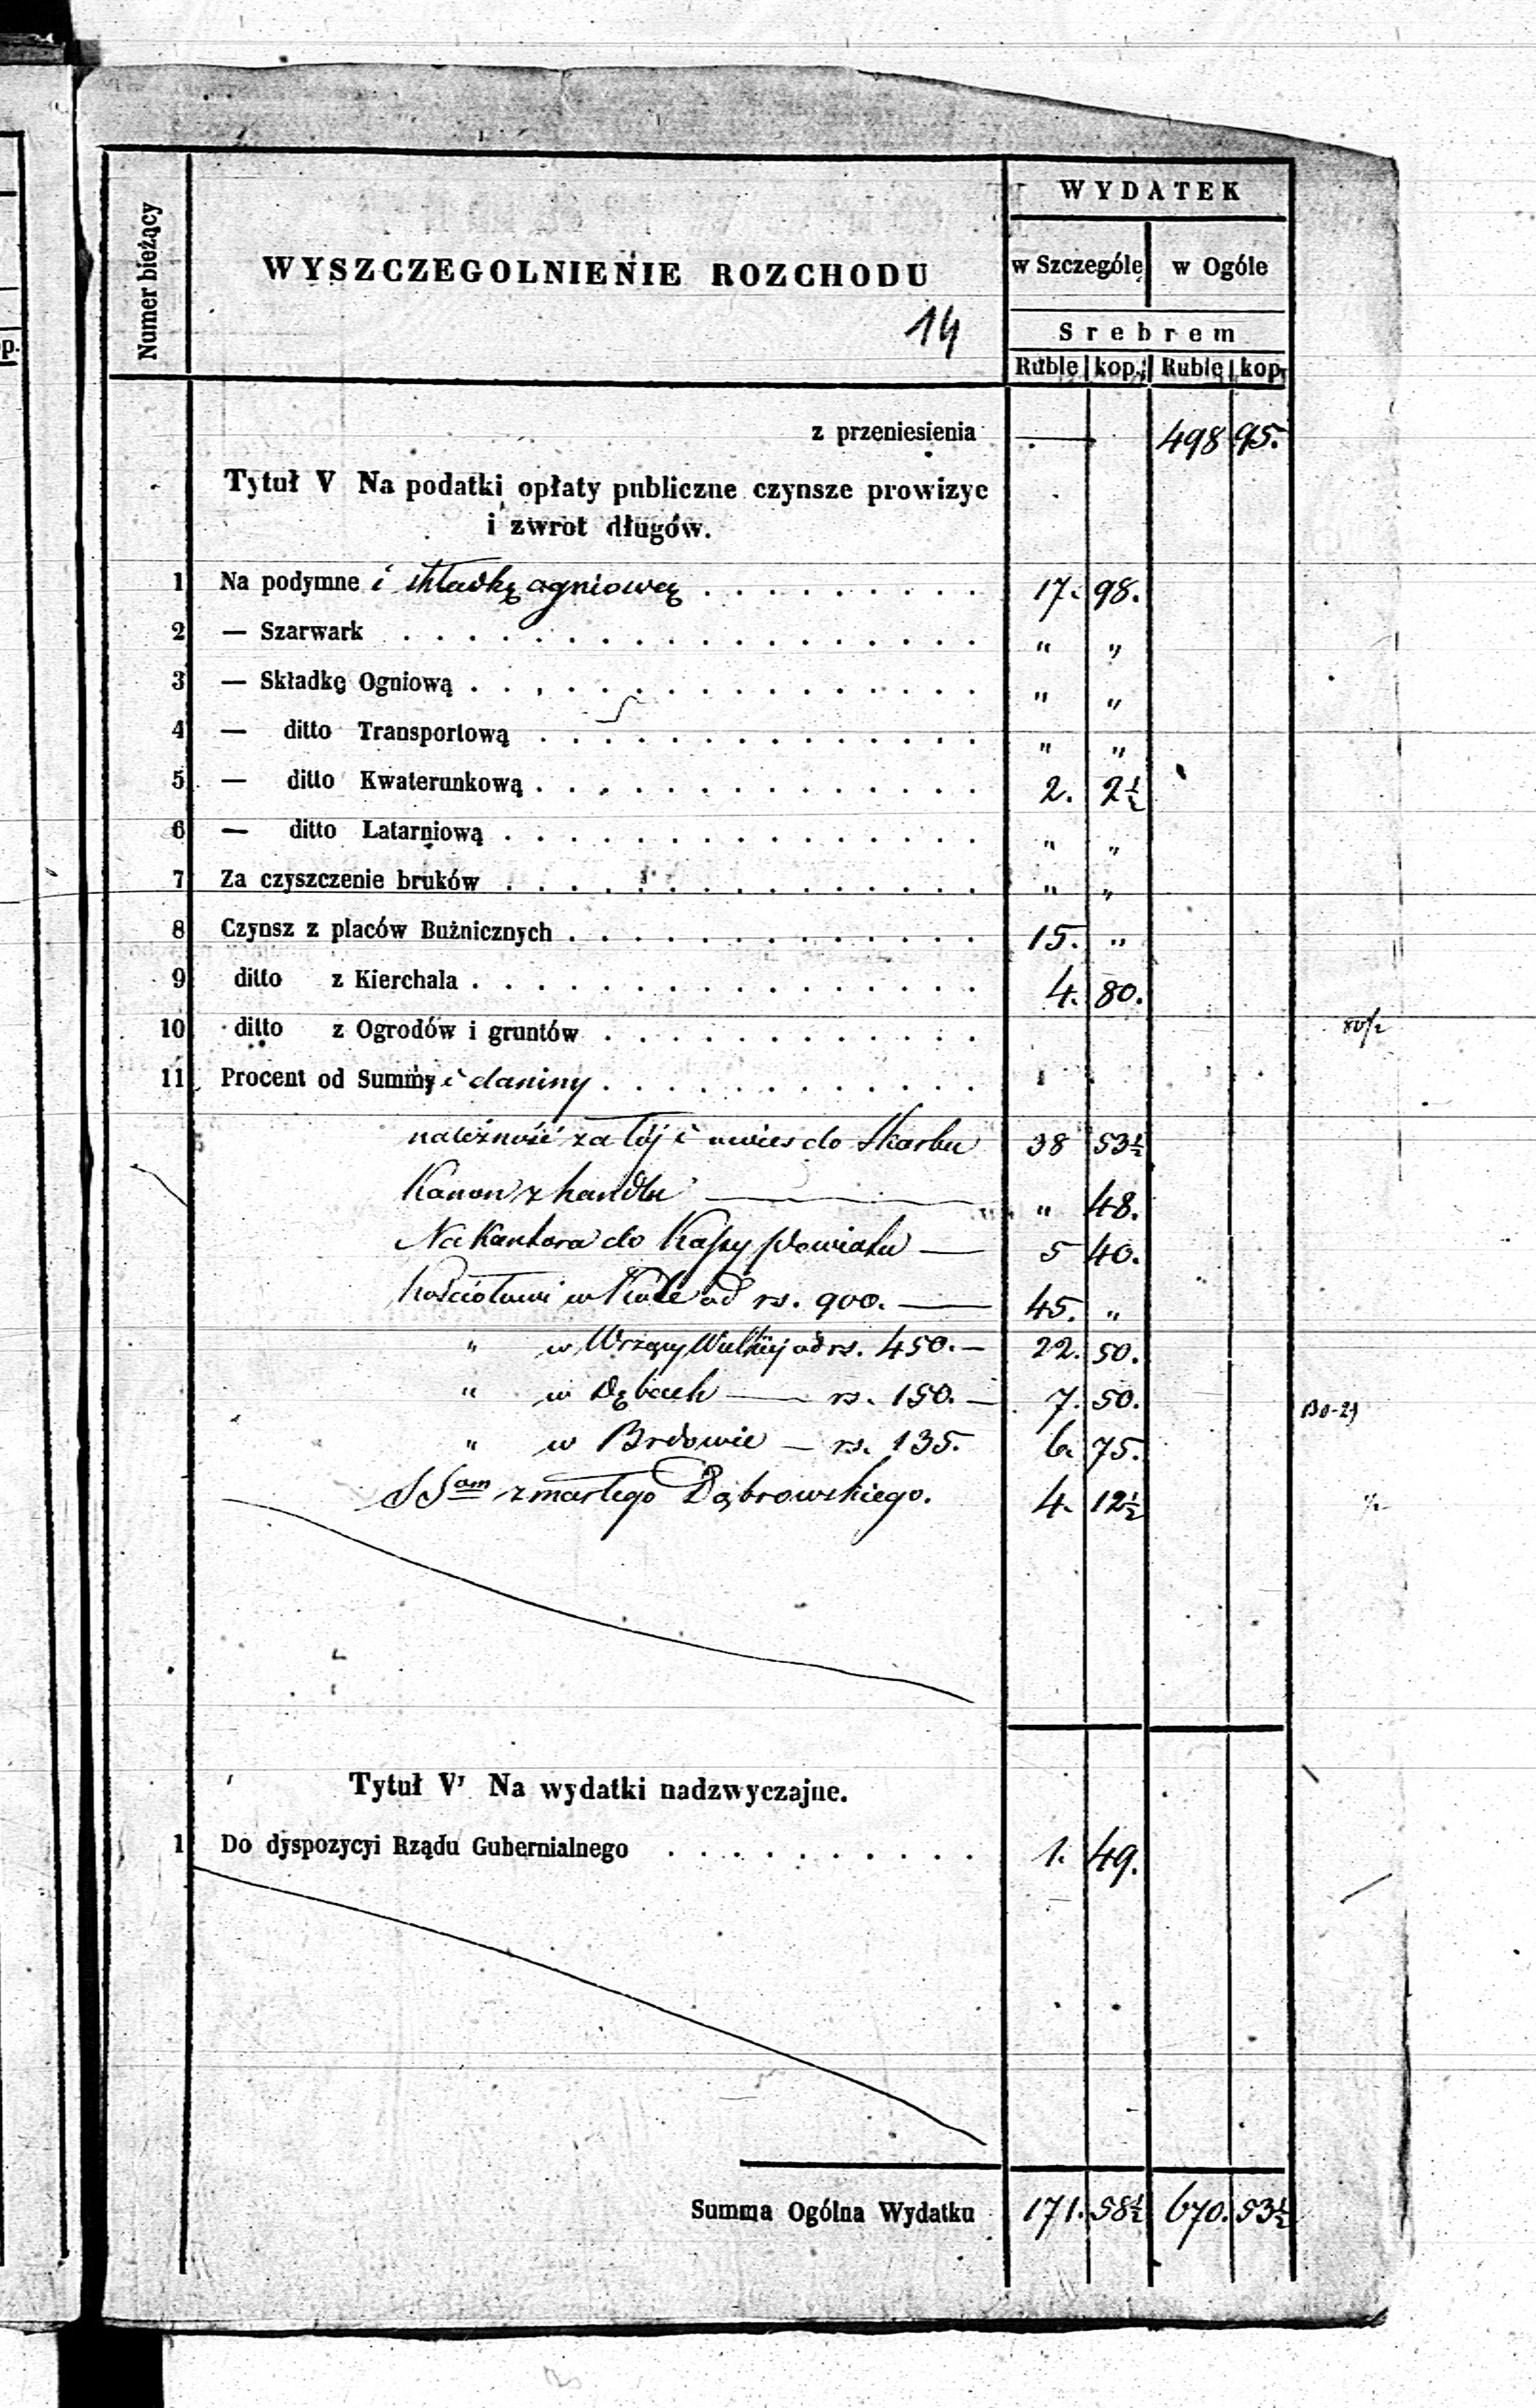 Numer bieżący
WYSZCZEGOLNIENIE ROZCHODU
14
WYDATEK
w Szczególe w Ogóle
Srebrem
Ruble kop. Ruble kop.
z przeniesienia — 498 95.
Tytuł V Na podatki opłaty publiczne czynsze prowizye
i zwrot długów.
1 Na podymne i składkę ogniową . . . . . . . . . 17. 98.
2 — Szarwark . . . . . . . . . " "
3 — Składkę Ogniową . . . . . . . . . " "
4 — ditto Transportową . . . . . . . . . " "
5 — ditto Kwaterunkową . . . . . . . . . 2. 2½
6 — ditto Latarniową . . . . . . . . . " "
7 Za czyszczenie bruków . . . . . . . . . " "
8 Czynsz z placów Bużnicznych . . . . . . . . . 15. "
9 ditto z Kierchala . . . . . . . . . 4. 80.
10 ditto z Ogrodów i gruntów . . . . . . . . .
11 Procent od Summy i daniny . . . . . . . . .
należność za łój i owies do Skarbu 38 53½
Kanon z handlu — " 48.
Na Kantora do Kassy Powiatu — 5 40.
Kościołowi w Kole od rs. 900. — 45. "
" w Wrzący Wielkiej od rs. 450. — 22. 50.
" w Dębach — rs. 150. — 7. 50.
" w Brdowie — rs. 135. 6. 75.
SSom zmarłego Dąbrowskiego. 4. 12½
Tytuł VI Na wydatki nadzwyczajne.
1 Do dyspozycyi Rządu Gubernialnego . . . . . . . . . 1. 49.
Summa Ogólna Wydatku 171. 58½ 670. 53½